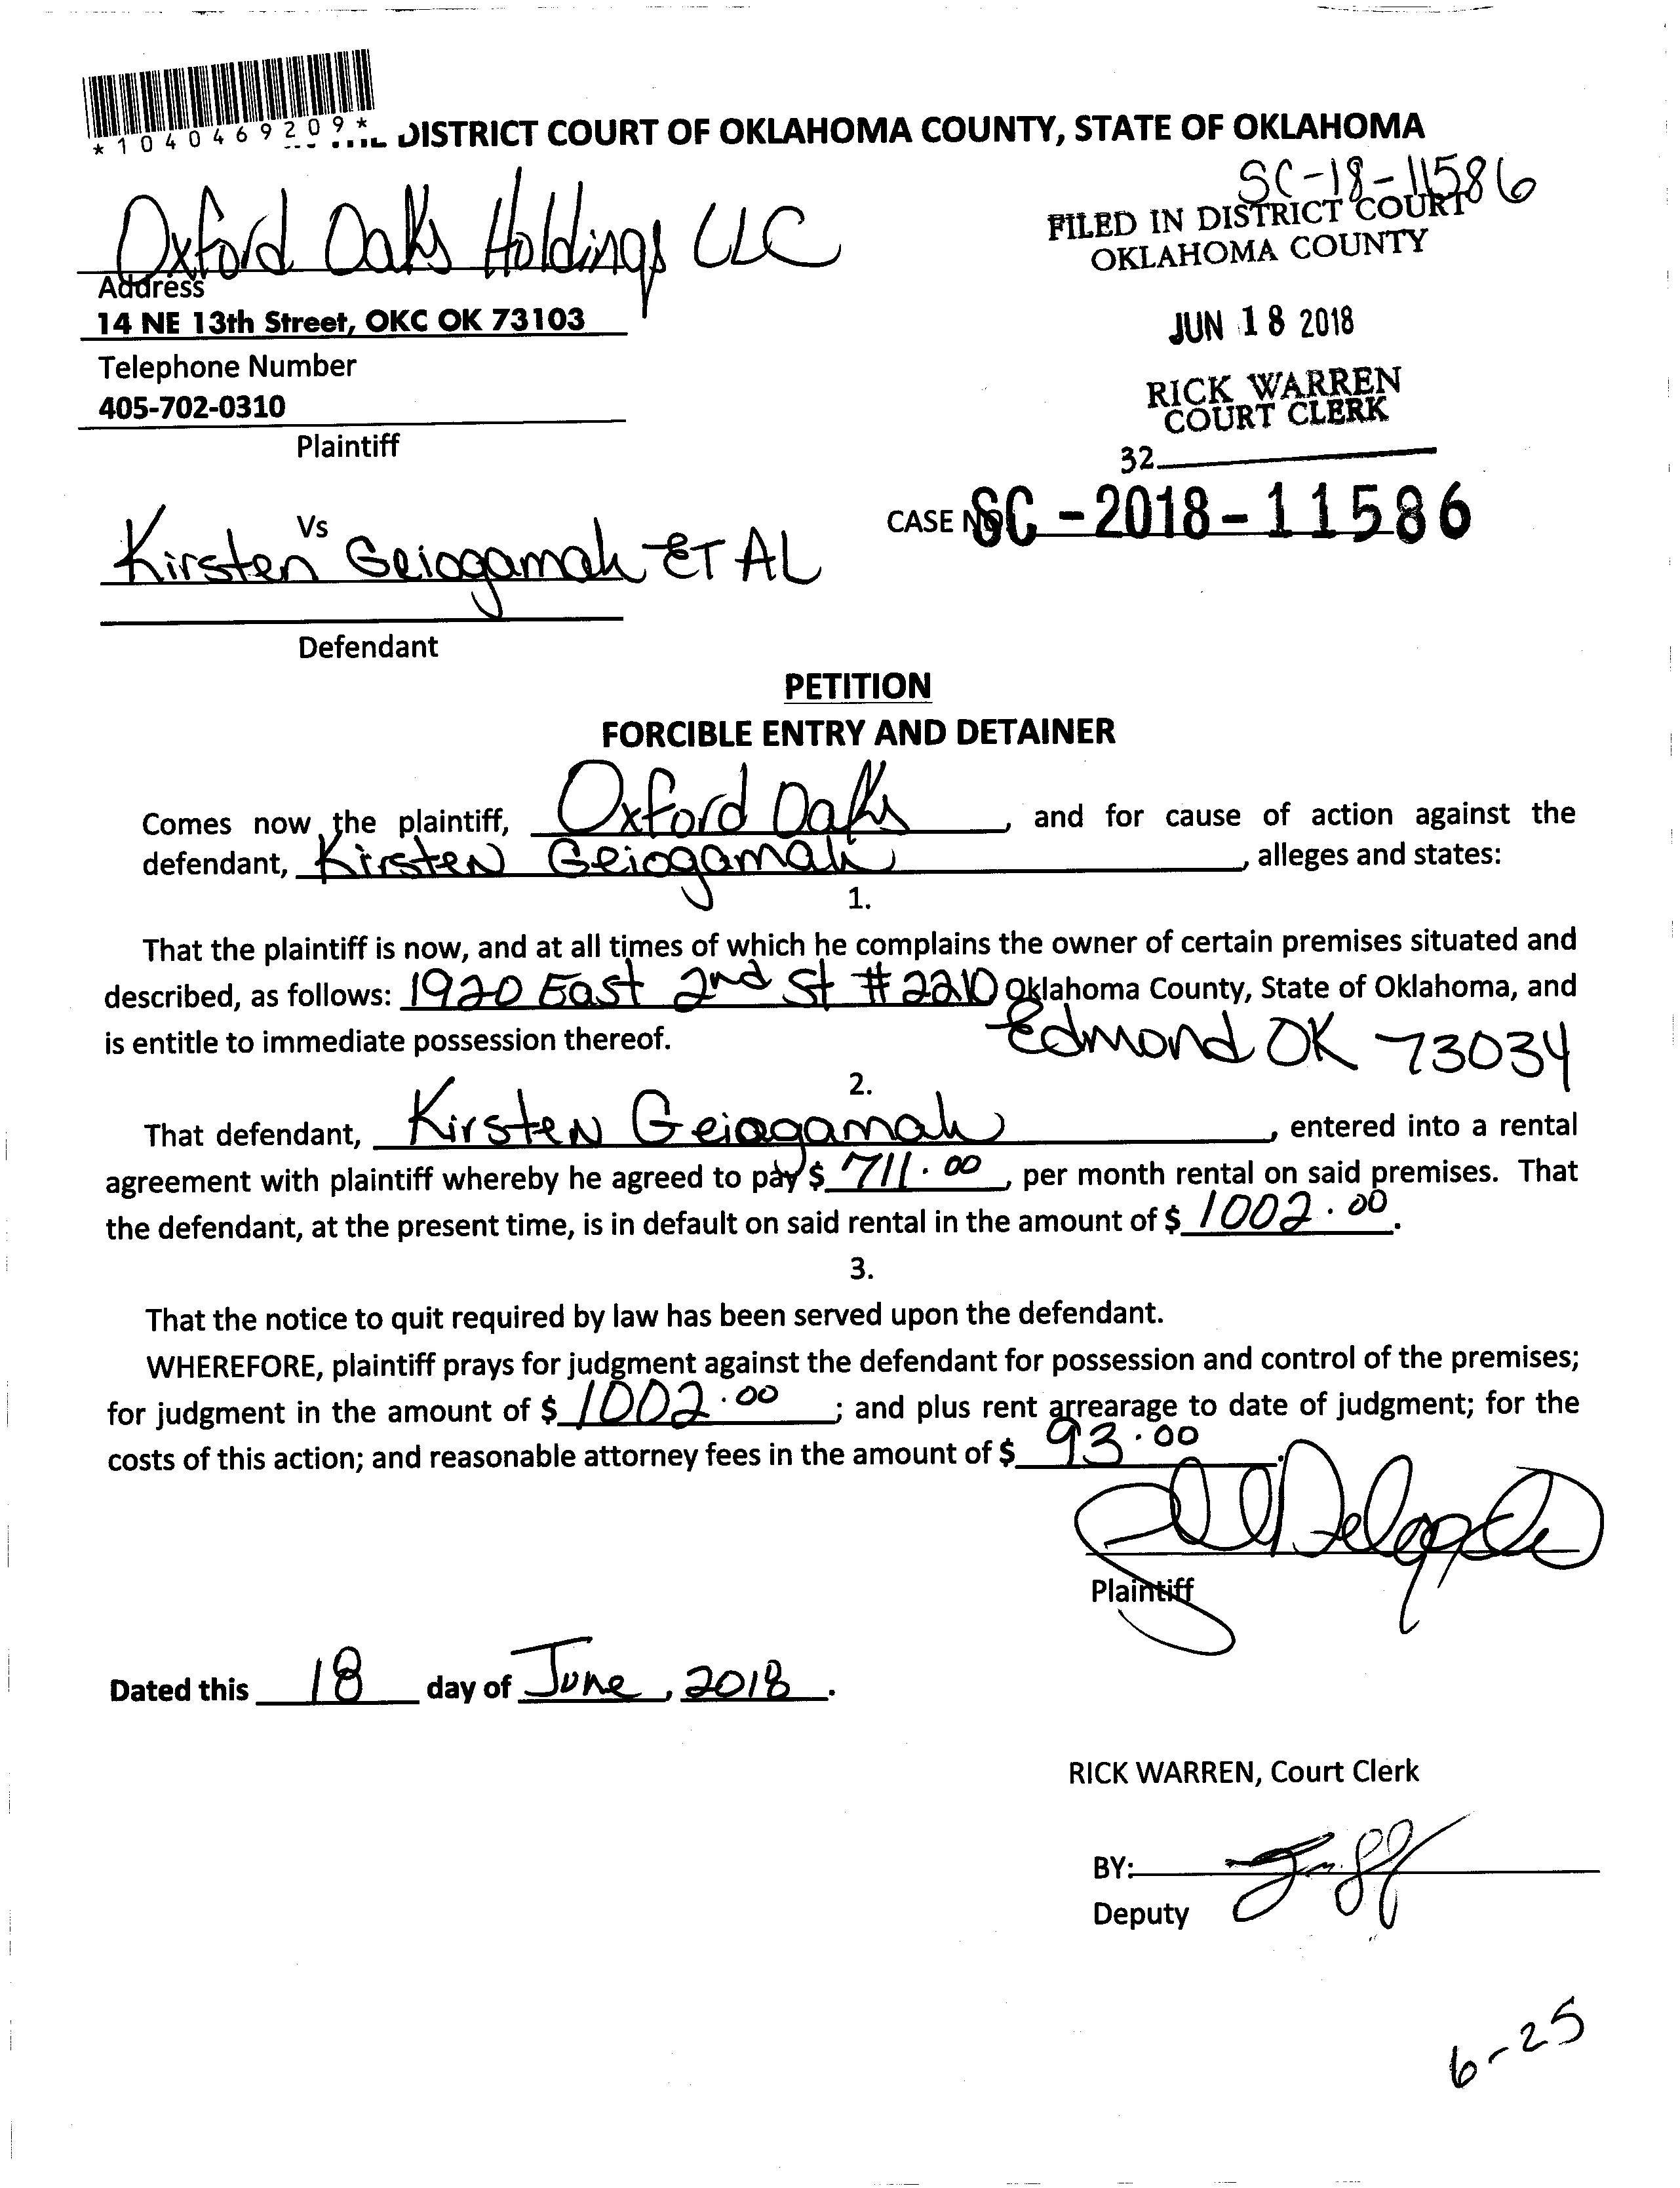 *1040469209*
DISTRICT COURT OF OKLAHOMA COUNTY, STATE OF OKLAHOMA
SC-18-11586
Oxford Oaks Holdings LLC
FILED IN DISTRICT COURT
OKLAHOMA COUNTY
Address
14 NE 13th Street, OKC OK 73103
JUN 18 2018
Telephone Number
405-702-0310
RICK WARREN
COURT CLERK
Plaintiff
32
Vs
CASE NO SC-2018-11586
Kirsten Geiogamah ET AL
Defendant
PETITION
FORCIBLE ENTRY AND DETAINER
Comes now the plaintiff, Oxford Oaks, and for cause of action against the
defendant, Kirsten Geiogamah, alleges and states:
1.
That the plaintiff is now, and at all times of which he complains the owner of certain premises situated and
described, as follows: 1920 East 2nd St #2210 Oklahoma County, State of Oklahoma, and
is entitle to immediate possession thereof. Edmond OK 73034
2.
That defendant, Kirsten Geiogamah, entered into a rental
agreement with plaintiff whereby he agreed to pay $ 711.00, per month rental on said premises. That
the defendant, at the present time, is in default on said rental in the amount of $ 1002.00.
3.
That the notice to quit required by law has been served upon the defendant.
WHEREFORE, plaintiff prays for judgment against the defendant for possession and control of the premises;
for judgment in the amount of $ 1002.00; and plus rent arrearage to date of judgment; for the
costs of this action; and reasonable attorney fees in the amount of $ 93.00.
Delgado
Plaintiff
Dated this 18 day of June, 2018.
RICK WARREN, Court Clerk
BY:
Deputy
6-25